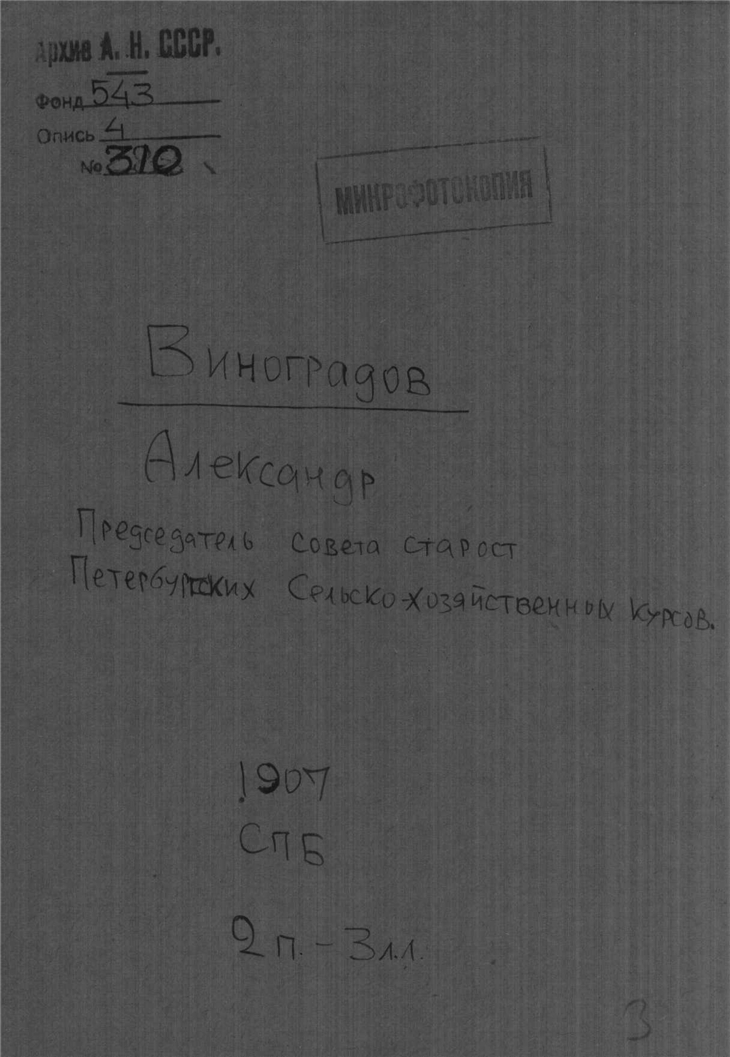 Архив А. Н. СССР.
Фонд 543
Опись 4
№ 310
МИКРОФОТОКОПИЯ
Виноградов
Александр
Председатель совета старост
Петербургских Сельско-хозяйственных курсов.
1907
СПБ
2 п. - 3 л.л.
3